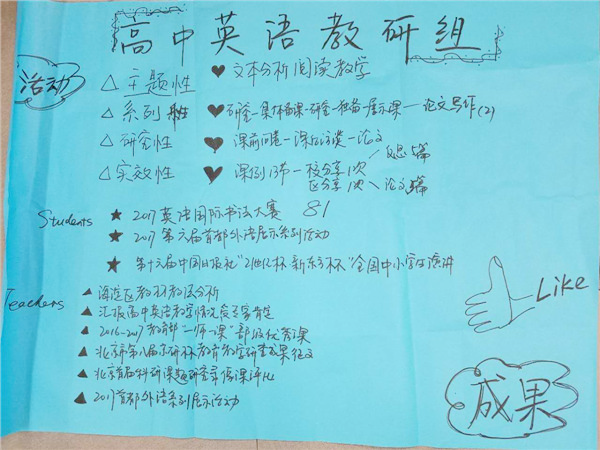 高中英语教研组
活动
△ 主题性 ♥ 文本分析 阅读教学
△ 系列性 ♥ 研会-集体备课-研会-独备-展示课—论文写作(2)
△ 研究性 ♥ 课前问卷-课后访谈-论文
△ 实效性 ♥ 课例13节-校分享1次 反思5篇
区分享1次 论文5篇
Students ★ 2017英语国际书法大赛 81
★ 2017第六届首都外语展示系列活动
★ 第十六届中国日报社"21世纪杯 新东方杯"全国中小学生演讲
Like
Teachers ▲ 海淀区教材教法分析
▲ 汇报高中英语教学情况受专家肯定
▲ 2016-2017教育部"一师一课"部级优秀课
▲ 北京市第八届京研杯教育教学研究成果征文
▲ 北京首届科研课题研究实践课评比
▲ 2017首都外语系列展示活动
成果